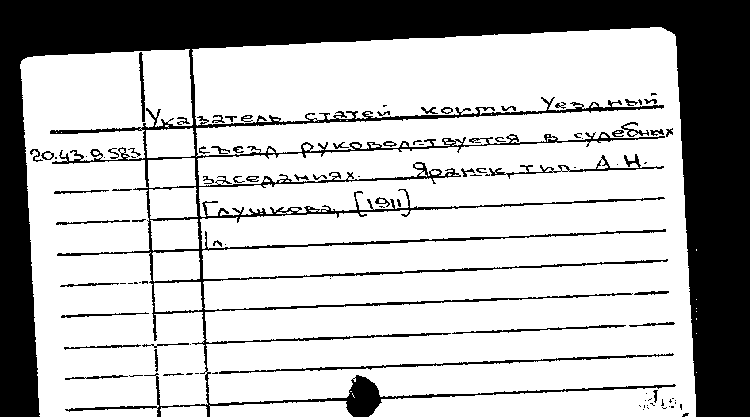 Указатель статей, коими Уездный
20.43.9.583 съезд руководствуется в судебных
заседаниях. Яранск, тип. А.Н.
Глушкова, [1911].
1л.